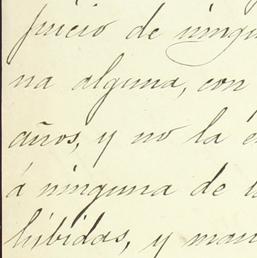 juicio de ningu
na alguna, con
años, y no la é
á ninguna de l
hibidas, y man